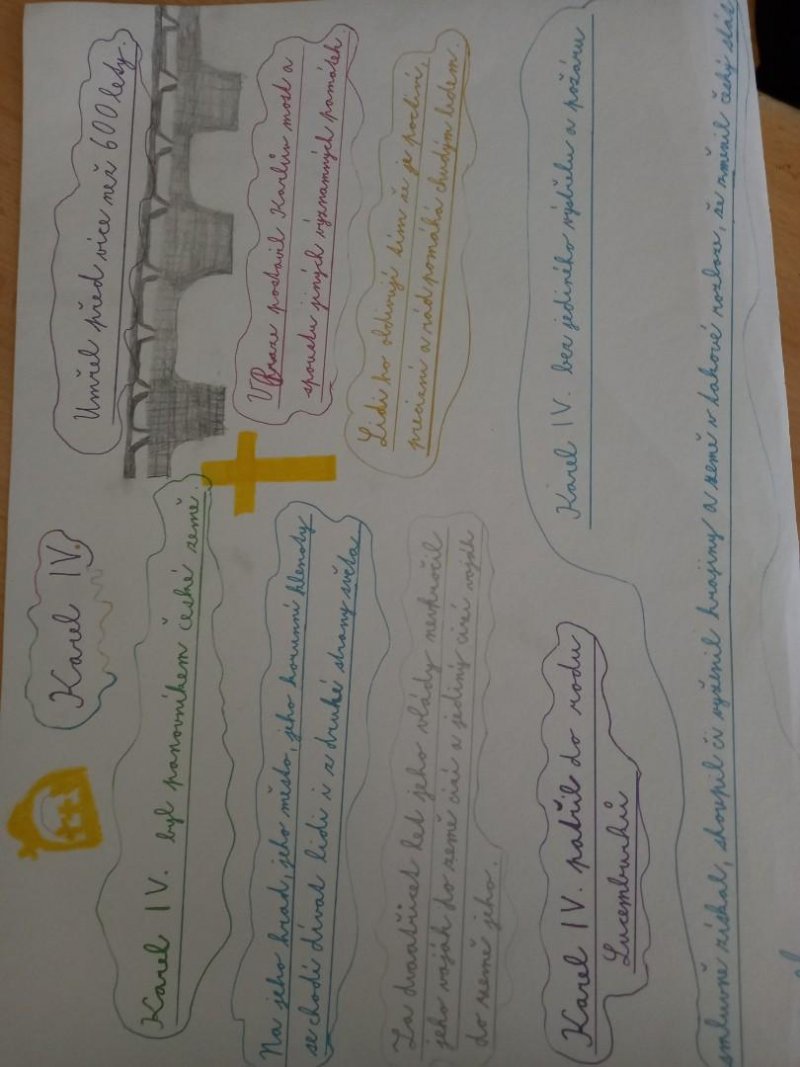 Karel IV.
Umřel před více než 600 lety.
Karel IV. byl panovníkem české země.
V Praze postavil Karlův most a
spoustu jiných významných památek.
Na jeho hrad, jeho město, jeho korunní klenoty
se chodí dívat lidi i z druhé strany světa
Lidi ho obdivují tím že je poctiví,
precizní a rád pomáhá chudým lidem.
Za dvaatřicet let jeho vlády nevkročil
jeho voják do země cizí a jediný cizí voják
do země jeho.
Karel IV. patřil do rodu
Lucemburků
Karel IV. bez jediného výstřelu a požáru
smluvně získal, skoupil či vyženil krajiny a země v takové rozloze, že změnil český stát